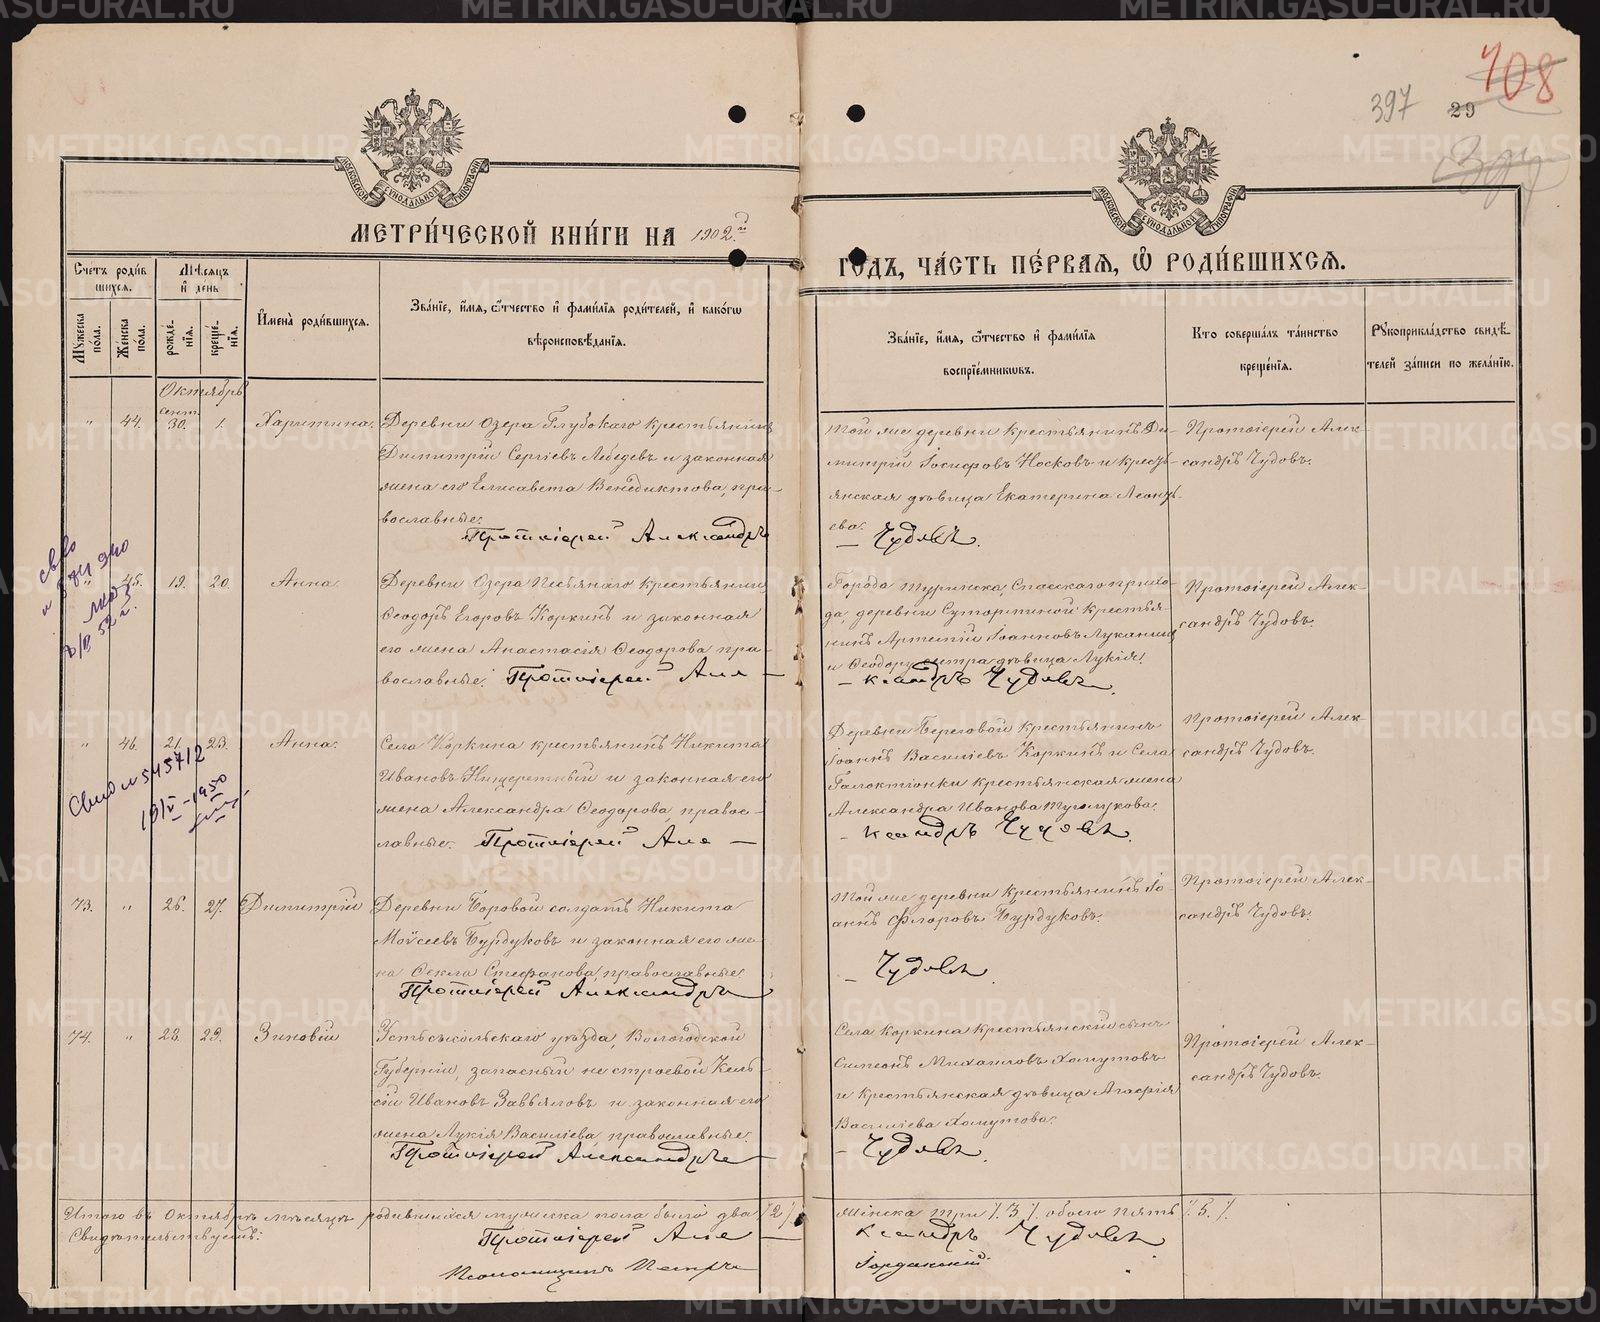 108
397
29
МЕТРИ́ЧЕСКОЙ КНИ́ГИ НА 1902 й
ГОДЪ, ЧА́СТЬ ПЕ́РВАЯ, Ѡ РОДИ́ВШИХСЯ.
МОСКОВСКОЙ СѴНОДАЛЬНОЙ ТИПОГРАФІИ
МОСКОВСКОЙ СѴНОДАЛЬНОЙ ТИПОГРАФІИ
Счетъ роди́вшихся.
Му́жеска по́ла.
Же́нска по́ла.
Мѣ́сяцъ и҆ день
рожде́нїя.
креще́нїя.
И҆мена̀ роди́вшихся.
Зва́нїе, и҆́мя, ѻ҆́тчество и҆ фами́лїя роди́телей, и҆ како́гѡ вѣроисповѣ́данїя.
Зва́нїе, и҆́мя, ѻ҆́тчество и҆ фами́лїя воспрїе́мникѡвъ.
Кто соверша́лъ та́инство креще́нїя.
Рꙋкоприкла́дство свидѣ́телей за́писи по жела́нїю.
Октябрь
" 44. Сент. 30. 1. Харитина.
Деревни Озера Глубокаго крестьянинъ
Димитрій Сергіевъ Лебедевъ и законная
жена его Елисавета Венедиктова, пра-
вославные.
Протоіерей Александръ
Той же деревни крестьянинъ Ди-
митрій Іосифовъ Носковъ и кресть-
янская дѣвица Екатерина Леонть-
ева.
— Чудовъ.
Протоіерей Алек-
сандръ Чудовъ.
" 45. 19. 20. Анна.
Деревни Озера Песьянаго крестьянинъ
Ѳеодоръ Егоровъ Коркинъ и законная
его жена Анастасія Ѳеодорова, пра-
вославные. Протоіерей Але —
Города Туринска, Спасскаго прихо-
да, деревни Сутормпиной крестья-
нинъ Артемій Іоанновъ Луканинъ
и Ѳеодору сестра дѣвица Лукія.
— ксандръ Чудовъ.
Протоіерей Алек-
сандръ Чудовъ.
" 46. 21. 23. Анна.
Села Коркина крестьянинъ Никита
Ивановъ и законная его
жена Александра Ѳеодорова, правос-
лавные. Протоіерей Але —
Деревни Береговой крестьянинъ
Іоаннъ Василіевъ Коркинъ и Села
Галактіонки крестьянская жена
Александра Иванова Туголукова.
— ксандръ Чудовъ.
Протоіерей Алек-
сандръ Чудовъ.
Св-во №545712
19/V-1950
73. " 26. 27. Димитрій
Деревни Боровой солдатъ Никита
Моѵсеевъ Бурдуковъ и законная его же-
на Ѳекла Стефанова, православные.
Протоіерей Александръ
Той же деревни крестьянинъ Іо-
аннъ Флоровъ Бурдуковъ.
— Чудовъ
Протоіерей Алек-
сандръ Чудовъ.
74. " 28. 29. Зиновій
Устьсысольскаго уѣзда, Вологодской
Губерніи, запасный не строевой Кель-
сій Ивановъ Завьяловъ и законная его
жена Лукія Василіева, православные.
Протоіерей Александръ —
Села Коркина крестьянскій сынъ
Симеонъ Михаиловъ Хомутовъ
и крестьянская дѣвица Агафія
Василіева Хомутова.
— Чудовъ.
Протоіерей Алек-
сандръ Чудовъ.
Итого въ Октябрѣ мѣсяцѣ родившихся мужеска пола было два /2/
женска три /.3./ обоего пять /.5./.
Свидѣтельствуемъ:
Протоіерей Але —
ксандръ Чудовъ
Псаломщикъ Петръ
Іорданскій.